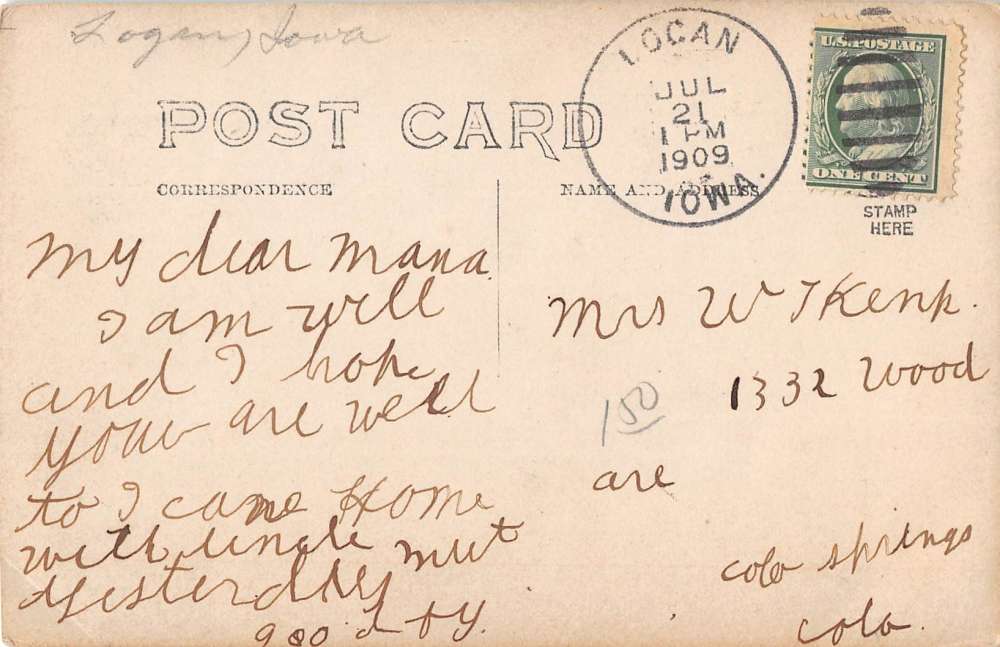 Logan, Iowa
POST CARD
LOGAN
JUL
21
1 PM
1909
IOWA.
U.S. POSTAGE
ONE CENT
STAMP
HERE
CORRESPONDENCE
NAME AND ADDRESS
my dear mama.
I am will
and I hope
your are well
to I came Home
with uncle mut
yesterday
good by.
Mrs W T Kenp.
1332 Wood
are
150
colo springs
colo.